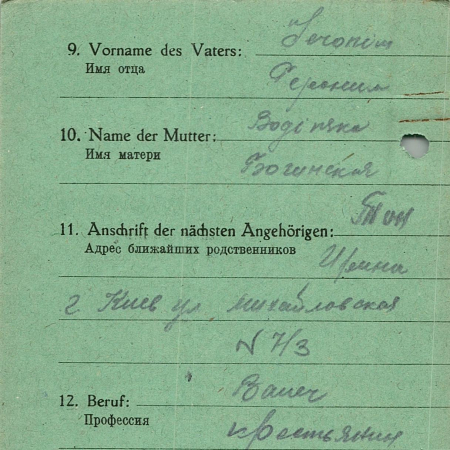 9. Vorname des Vaters: Jeronim
Имя отца Героним
10. Name der Mutter:
Имя матери Богинская
11. Anschrift der nächsten Angehörigen:
Адрес ближайших родственников Ирина
г Киев ул михайловская
N 7/3
12. Beruf: Bauer
Профессия крестьянин